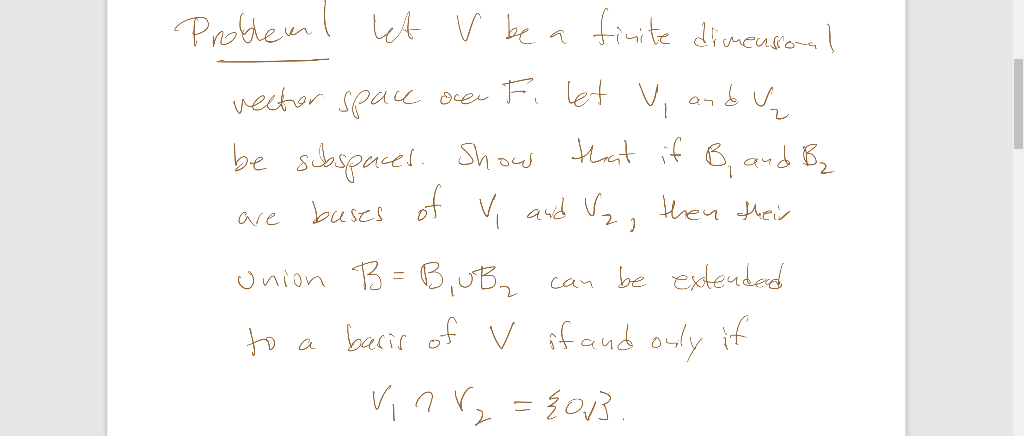 Problem 1 Let V be a finite dimensional
vector space over F. Let V₁ and V₂
be subspaces. Show that if B₁ and B₂
are bases of V₁ and V₂, then their
union B = B₁∪B₂ can be extended
to a basis of V if and only if
V₁ ∩ V₂ = {0ᵥ}.